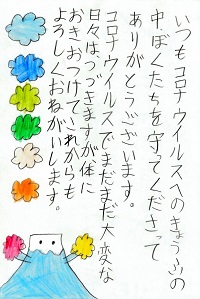 いつもコロナウイルスへのきょうふの
中ぼくたちを守ってくださって
ありがとうございます。
コロナウイルスでまだまだ大変な
日々はつづきますが体に
おきおつけてこれからも
よろしくおねがいします。